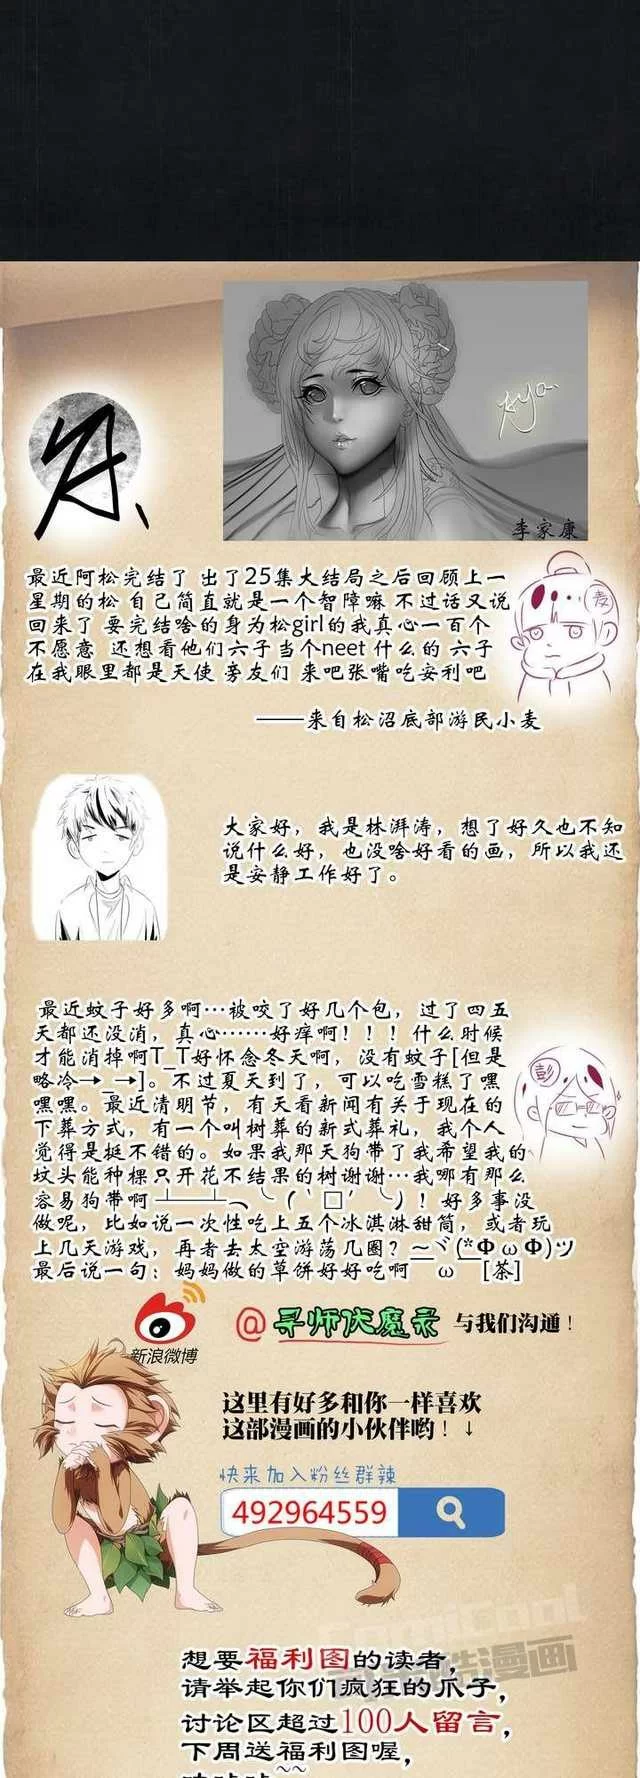 Aya.
李家康
最近阿松完结了 出了25集大结局之后回顾上一
星期的松 自己简直就是一个智障嘛 不过话又说
回来了 要完结啥的身为松girl的我真心一百个
不愿意 还想看他们六子当个neet 什么的 六子
在我眼里都是天使 旁友们 来吧张嘴吃安利吧
麦
——来自松沼底部游民小麦
大家好，我是林湃涛，想了好久也不知
说什么好，也没啥好看的画，所以我还
是安静工作好了。
最近蚊子好多啊…被咬了好几个包，过了四五
天都还没消，真心……好痒啊！！！什么时候
才能消掉啊T_T好怀念冬天啊，没有蚊子[但是
略冷→_→]。不过夏天到了，可以吃雪糕了嘿
嘿嘿。最近清明节，有天看新闻有关于现在的
下葬方式，有一个叫树葬的新式葬礼，我个人
觉得是挺不错的。如果我那天狗带了我希望我的
坟头能种棵只开花不结果的树谢谢…我哪有那么
容易狗带啊┻━┻︵╰(‵□′╰)！好多事没
做呢，比如说一次性吃上五个冰淇淋甜筒，或者玩
上几天游戏，再者去太空游荡几圈？~ヾ(*ΦωΦ)ツ
最后说一句：妈妈做的草饼好好吃啊￣ω￣[茶]
彭
新浪微博
@寻师伏魔录 与我们沟通！
这里有好多和你一样喜欢
这部漫画的小伙伴哟！↓
快来加入粉丝群辣
492964559
想要福利图的读者，
请举起你们疯狂的爪子，
讨论区超过100人留言，
下周送福利图喔，